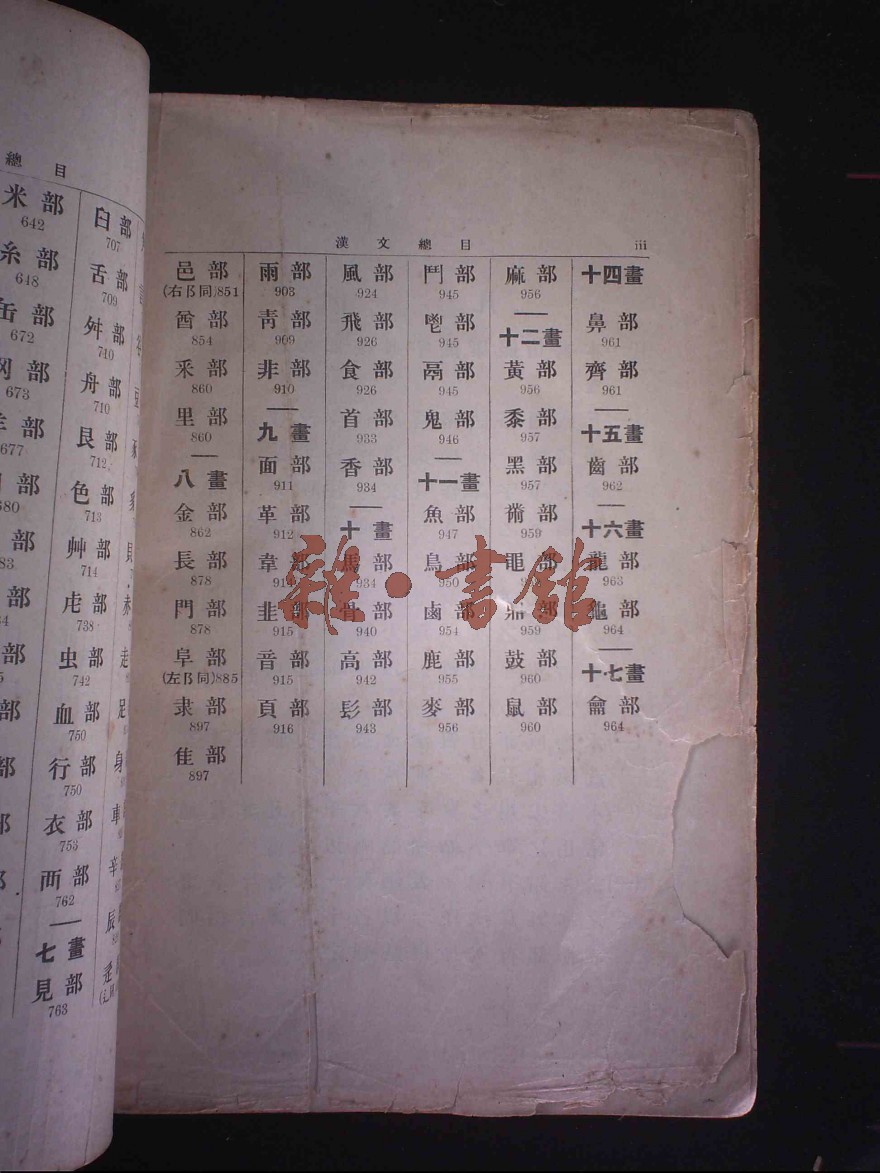 總 目
米部
642
糸部
648
缶部
672
部
673
部
677
部
680
部
部
部
部
部
臼部
707
舌部
709
舛部
710
舟部
710
艮部
712
色部
713
艸部
714
虍部
738
虫部
742
血部
750
行部
750
衣部
753
襾部
762
七畫
見部
763
谷
豆
豕
赤
走
足
身
車
辛
辰
漢文總目
iii
邑部
(右阝同)851
酋部
854
釆部
860
里部
860
八畫
金部
862
長部
878
門部
878
阜部
(左阝同)885
隶部
897
隹部
897
雨部
903
靑部
909
非部
910
九畫
面部
911
革部
912
韋部
韭部
915
音部
915
頁部
916
風部
924
飛部
926
食部
926
首部
933
香部
934
十畫
馬部
934
骨部
940
高部
942
髟部
943
鬥部
945
鬯部
945
鬲部
945
鬼部
946
十一畫
魚部
947
鳥部
950
鹵部
954
鹿部
955
麥部
956
麻部
956
十二畫
黃部
956
黍部
957
黑部
957
黹部
959
黽部
鼎部
959
鼓部
960
鼠部
960
十四畫
鼻部
961
齊部
961
十五畫
齒部
962
十六畫
龍部
963
龜部
964
十七畫
龠部
964
雜·書館